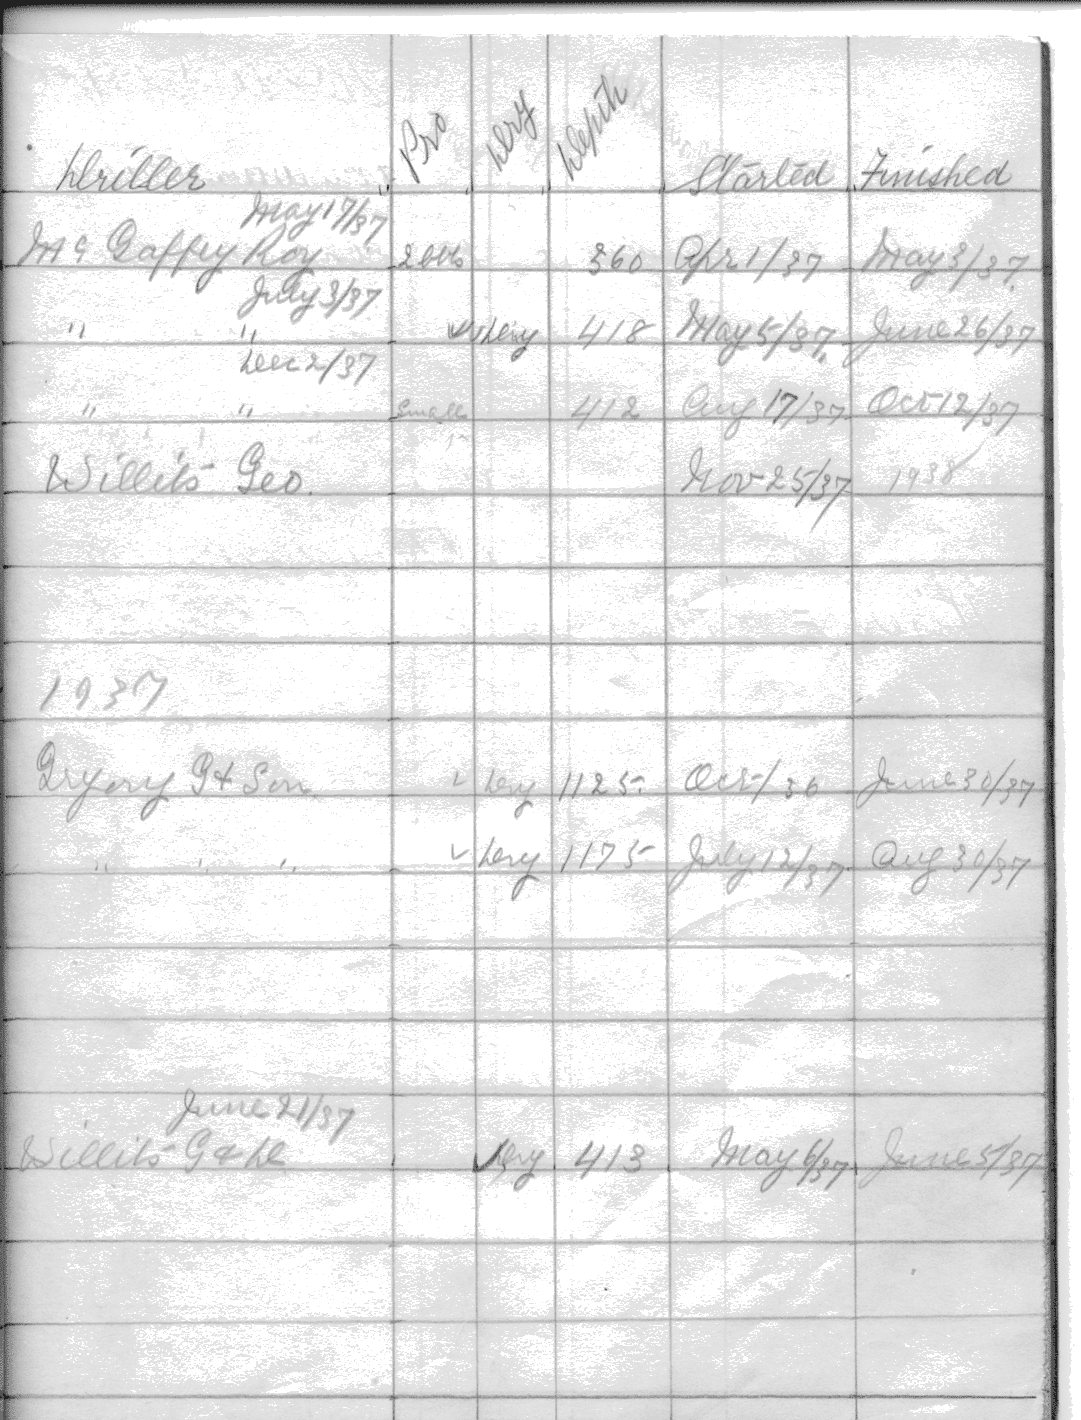 Driller Pro Dry Depth Started Finished
May 17/37
Mc Gaffey Roy 360 Apr 1/37 May 3/37.
July 3/37
" " Dry 418 May 5/37. June 26/37
Dec 2/37
" " Small 412 Aug 17/37 Oct 12/37
Willits Geo. Nov 25/37 1938
1937
Gregory G & Son ✓ Dry 1125. Oct / 36 June 30/37
" " " ✓ Dry 1175 July 12/37 Aug 30/37
June 21/37
Willits G & D Dry 413 May 6/37 June 5/37